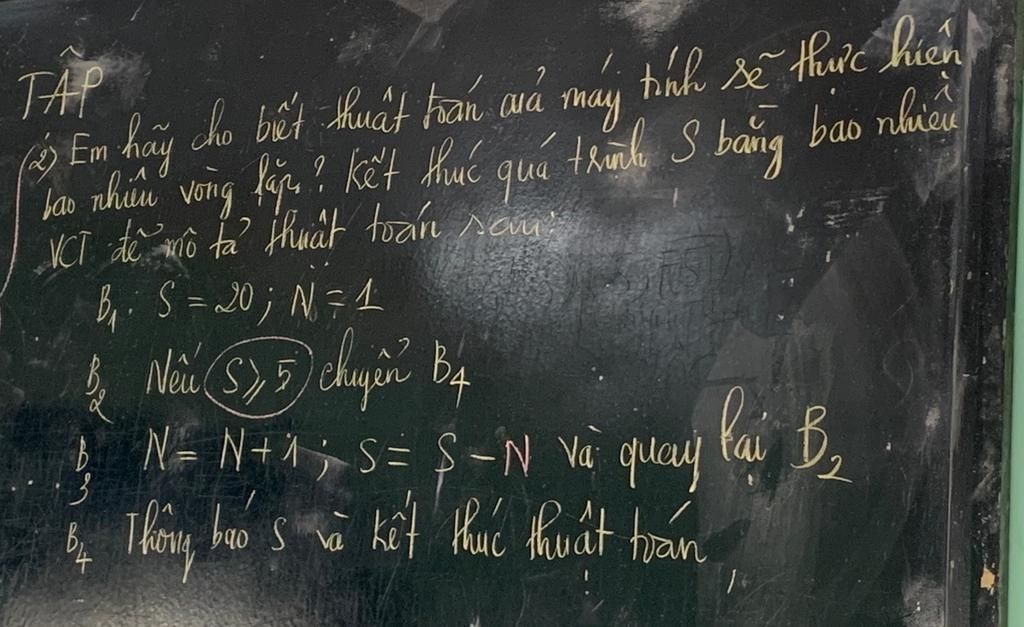 TẬP
(2) Em hãy cho biết thuật toán củả máy tính sẽ thực hiện
bao nhiêu vòng lặp? Kết thúc quá trình S bằng bao nhiêu
VCT để mô tả thuật toán sau:
B1: S = 20; N = 1
B2 Nếu S ⩾ 5 chuyển B4
B3 N = N + 1; S = S - N và quay lại B2
B4 Thông báo S và kết thúc thuật toán